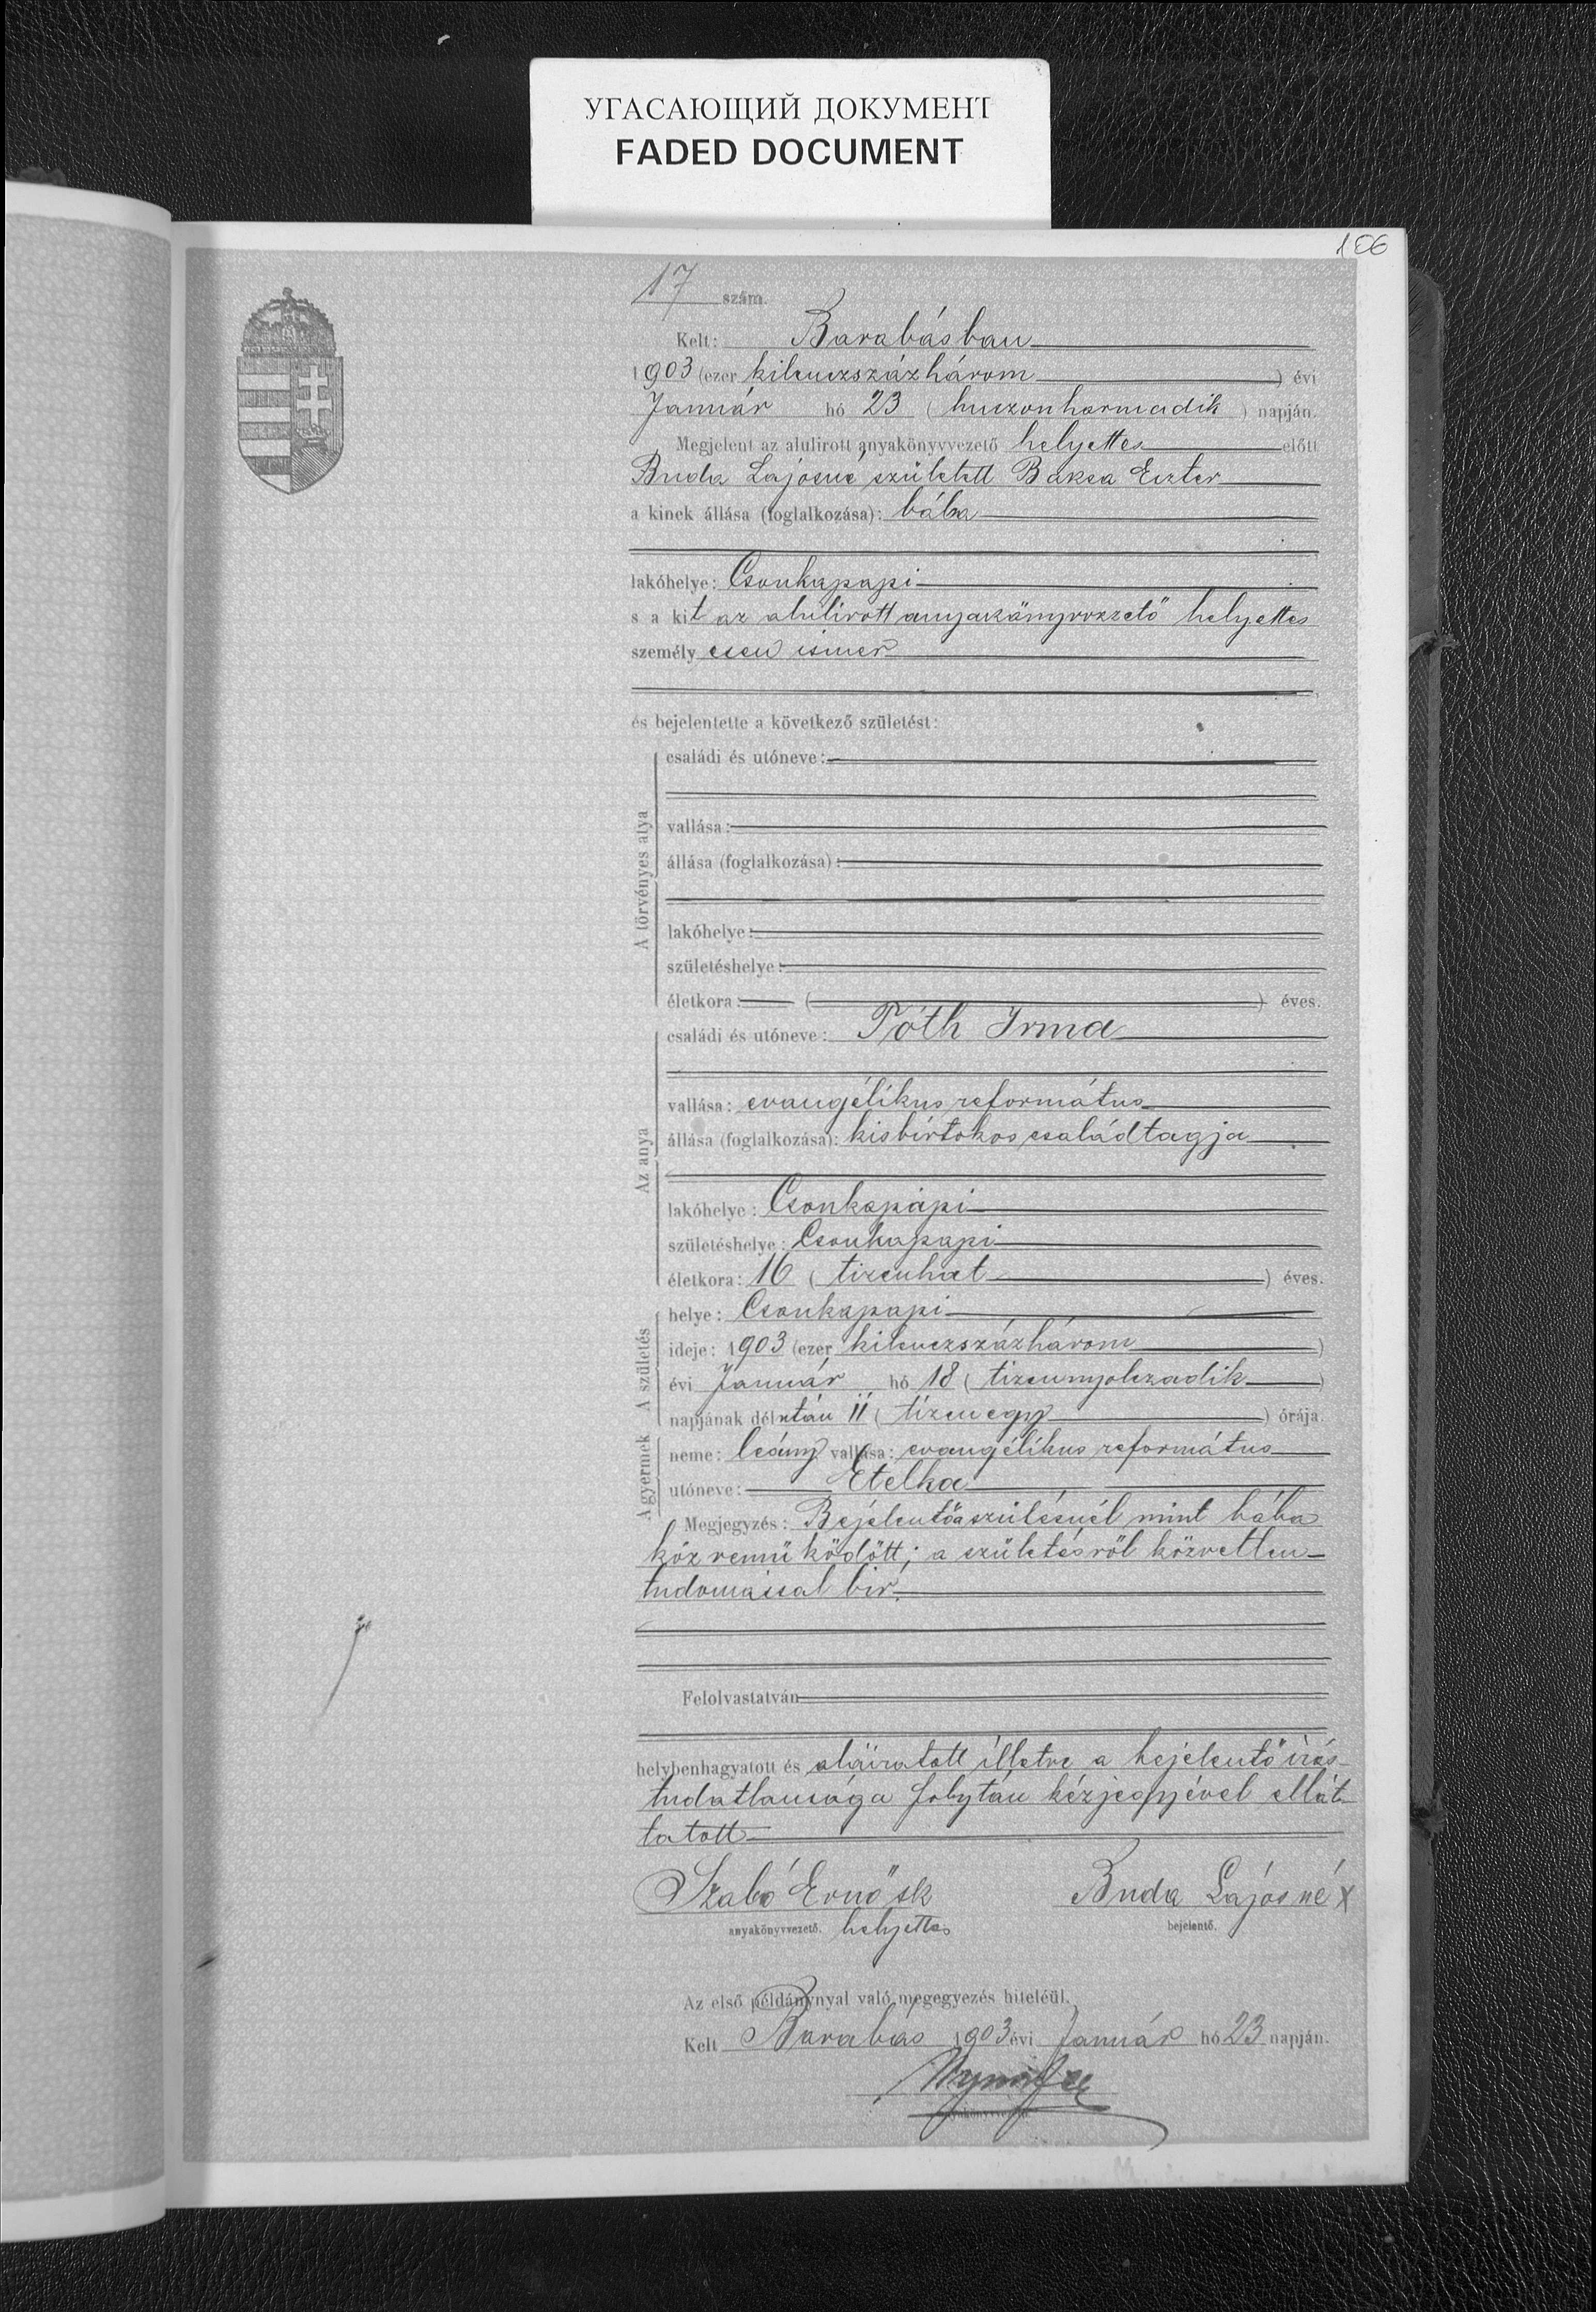 УГАСАЮЩИЙ ДОКУМЕНТ
FADED DOCUMENT
106
17 szám.
Kelt: Barabásban
1903 (ezer kilenczszázhárom ) évi
Január hó 23 ( huszonharmadik ) napján.
Megjelent az alulirott anyakönyvvezető helyettes előtt
Buda Lajosné született Baksa Eszter
a kinek állása (foglalkozása): bába
lakóhelye: Csonkapapi
s a kit az alulirott anyakönyvvezető helyettes
személyesen ismer
és bejelentette a következő születést:
A törvényes atya
családi és utóneve:
vallása:
állása (foglalkozása):
lakóhelye:
születéshelye:
életkora: ( ) éves.
Az anya
családi és utóneve: Tóth Irma
vallása: evangélikus református
állása (foglalkozása): kisbirtokos családtagja
lakóhelye: Csonkapapi
születéshelye: Csonkapapi
életkora: 16 ( tizenhat ) éves.
A születés
helye: Csonkapapi
ideje: 1903 (ezer kilenczszázhárom )
évi Január hó 18 ( tizennyolczadik )
napjának délután 11 ( tizenegy ) órája.
A gyermek
neme: leány vallása: evangélikus református
utóneve: Etelka
Megjegyzés: Bejelentő a szülésnél mint bába
közremüködött; a születésről közvetlen
tudomással bir.
Felolvastatván
helybenhagyatott és aláiratott illetve a bejelentő irás
tudatlansága folytán kézjegyével ellát
tatott
Szabó Ernő sk Buda Lajosné x
anyakönyvvezető. helyettes bejelentő.
Az első példánynyal való megegyezés hiteléül.
Kelt Barabás 1903 évi Január hó 23 napján.